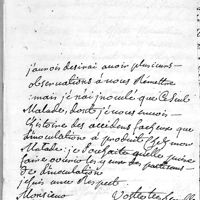 j'aurois desiré avoir plusieurs
observations a vous Remettre
mais je n'ai inoculé que ce seul
Malade, dont je vous envois
l'histoire des accidens facheux que
l'inoculation a produits chez mon
Malade: je souhaite qu'elle puisse
faire ouvrir les yeux des partisans
de l'inoculation
je suis avec Respect.
Monsieur Votre tres